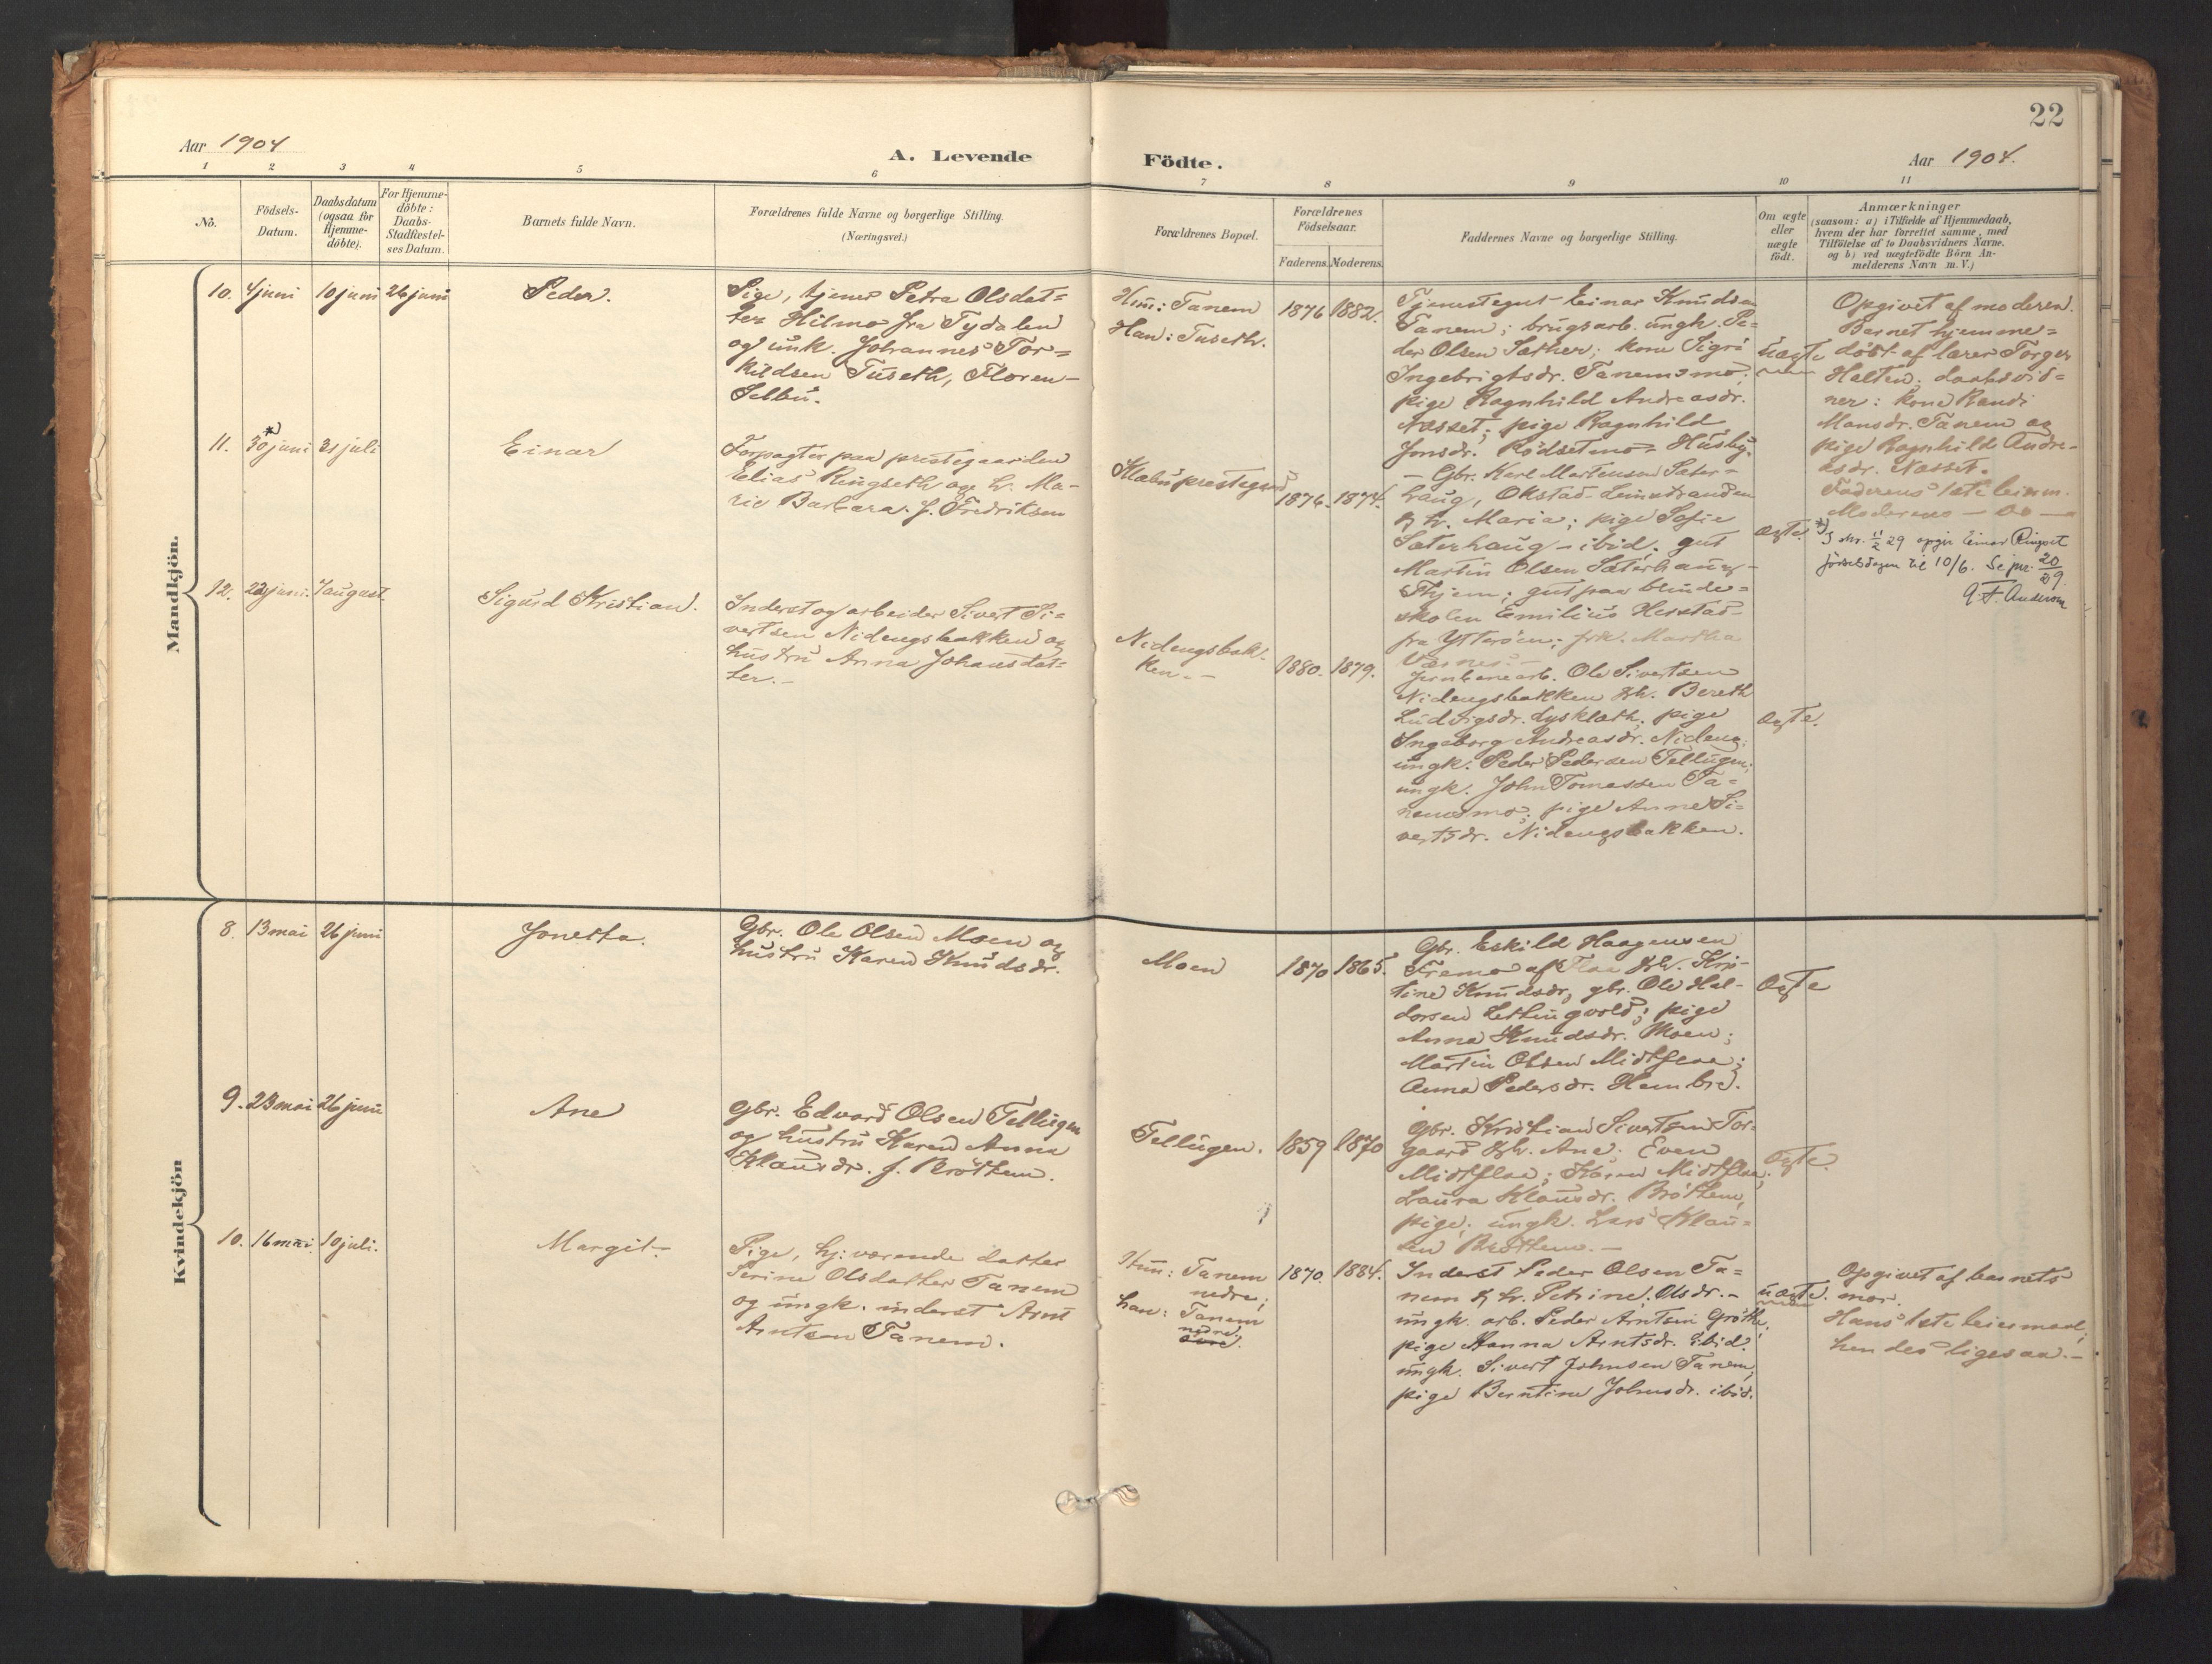 22
Aar 1904
A. Levende
Födte.
Aar 1904.
1 2 3 4 5 6 7 8 9 10 11
No.
Födsels-
Datum.
Daabsdatum
(ogsaa for
Hjemme-
döbte).
For Hjemme-
döbte:
Daabs-
Stadfæstel-
ses Datum.
Barnets fulde Navn.
Forældrenes fulde Navne og borgerlige Stilling.
(Næringsvei.)
Forældrenes Bopæl.
Forældrenes
Födselsaar.
Faderens. Moderens.
Faddernes Navne og borgerlige Stilling.
Om ægte
eller
uægte
födt.
Anmærkninger
(saasom: a) i Tilfælde af Hjemmedaab,
hvem der har forrettet samme, med
Tilföielse af to Daabsvidners Navne.
og b) ved uægtefödte Börn An-
melderens Navn m. V.)
Mandkjön.
10. 4 juni 10 juni 26 juni
Peder.
Pige, tjener Petra Olsdat=
ter Hilmo fra Tydalen
og unk. Johannes Tor=
kildsen Tuseth, Floren-
Selbu.
Hun: Tanem
Han: Tuseth.
1876 1882.
Tjenestegut Einar Knudsen
Tanem; brugsarb. ungk. Pe=
der Olsen Sæther; kone Sigri
Ingebrigtsdr. Tanemsmo;
pige Ragnhild Andreasdr.
Næsset; pige Ragnhild
Jonsdr. Rödsetmo= Husby.
uægte
Opgivet af moderen.
Barnet hjemme=
döbt af lærer Torger
Halten; daabsvid=
ner: kone Randi
Monsdr. Tanem og
pige Ragnhild Andre-
asdr. Næsset.
Faderens 1ste leierm.
Moderens — do —
11. 30 *) juni 31 juli
Einar
Forpagter paa prestegaarden
Elias Ringseth og h. Ma-
rie Barbara f. Fredriksen
Klæbu prestegrd
1876. 1874.
— Gbr. Karl Martensen Sæter=
haug, Okstad-Leinstranden
& h. Maria; pige Sofie
Sæterhaug - ibid; gut
Martin Olsen Sæterhaug-
Thjem; gut paa blinde=
skolen Emilius Hesstad-
fra Ytteröen; frk. Martha
Værnes.-
Ægte.
*) I skr. 11/2 29 opgir Einar Ringset
födselsdagen til 10/6. Se jnr. 20/29.
A. F. Andersen
12. 22 juni. 7 august.
Sigurd Kristian.
Inderst og arbeider Sivert Si-
vertsen Nidengsbakken og
hustru Anna Johansdat=
ter.-
Nidengsbak-
ken.-
1880. 1879.
Jernbanearb. Ole Sivertsen
Nidengsbakken & h. Bereth
Ludvigsdr. Lysklæth; pige
Ingeborg Andreasdr. Nideng;
ungk. Peder Pedersen Tellugen;
ungk. John Tomassen Ta=
nemsmo; pige Anne Si=
vertsdr. Nidengsbakken.
Ægte.
Kvindekjön
8. 13 mai 26 juni
Jonetta.
Gbr. Ole Olsen Moen og
hustru Karen Knudsdr.
Moen
1870 1865.
Gbr. Eskild Haagensen
Fremo af Flaa & h. Kris-
tine Knudsdr, gbr. Ole Hal-
dorsen Lettingvold; pige
Anna Knudsdr. Moen;
Martin Olsen Midtflaa;
Anna Pedersdr. Hembre.
Ægte
9. 23 mai 26 juni
Ane
Gbr. Edvard Olsen Tellugen
og hustru Karen Anna
Klausdr. f. Bröttem.
Tellugen.
1859 1870
Gbr. Kristian Sivertsen Tor=
gaard & h. Ane; Even
Midtflaa; Karen Midtflaa;
Laura Klausdr. Bröttem,
pige; ungk. Lars Klau=
sen Bröttem.—
Ægte.
10. 16 mai. 10 juli.
Margit-
Pige, hj: værende datter
Serine Olsdatter Tanem
og ungk. inderst Arnt
Arntsen Tanem.
Hun: Tanem
nedre;
han: Tanem
nedre.
övre.
1870. 1884.
Inderst Peder Olsen Ta=
nem & h. Petrine Olsdr.-
ungk. arb. Peder Arntsen Gröthe;
pige Hanna Arntsdr. ibid.
ungk. Sivert Johnsen Tanem,
pige Berntine Johnsdr. ibid.
uægte.
Opgivet af barnets
mor.
Hans 1ste leiermaal;
hendes ligesaa.-